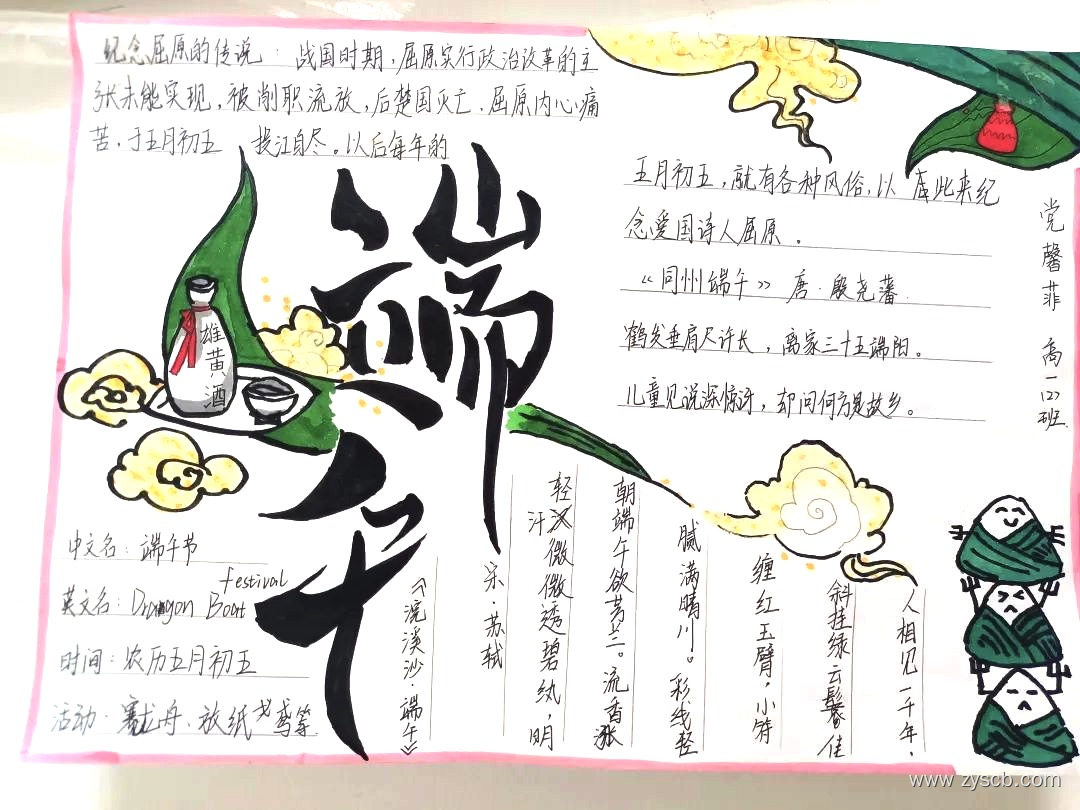 纪念屈原的传说：战国时期，屈原实行政治改革的主
张未能实现，被削职流放，后楚国灭亡，屈原内心痛
苦，于五月初五 投江自尽。以后每年的
五月初五，就有各种风俗，以 来纪
念爱国诗人屈原。
《同州端午》唐·殷尧藩
鹤发垂肩尺许长，离家三十五端阳。
儿童见说深惊讶，却问何方是故乡。
党馨菲 高一(2)班
端午
雄黄酒
中文名：端午节
festival
英文名：Drangon Boat
时间：农历五月初五
活动·赛龙舟、放纸鸢等
《浣溪沙·端午》
宋·苏轼
轻汗微微透碧纨，明
朝端午欲芳兰。流香涨
腻满晴川。彩线轻
缠红玉臂，小符
斜挂绿云鬟。佳
人相见一千年，
www.zyscb.com